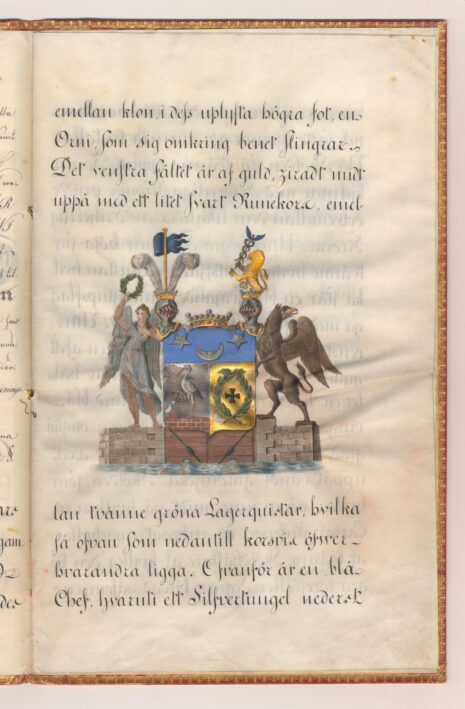 emellan klon, i dess uplysta högra fot, en
Orm, som sig omkring benet slingrar.
Det venstra fältet är af guld, ziradt midt
uppå med ett litet svart Runekors, emel-
lan tvänne gröna Lagerquistar, hvilka
så ofvan som nedantill korsvis öfver-
hvarandra ligga. Ofvanför är en blå
Chef, hvaruti ett Silfvertungel nederst